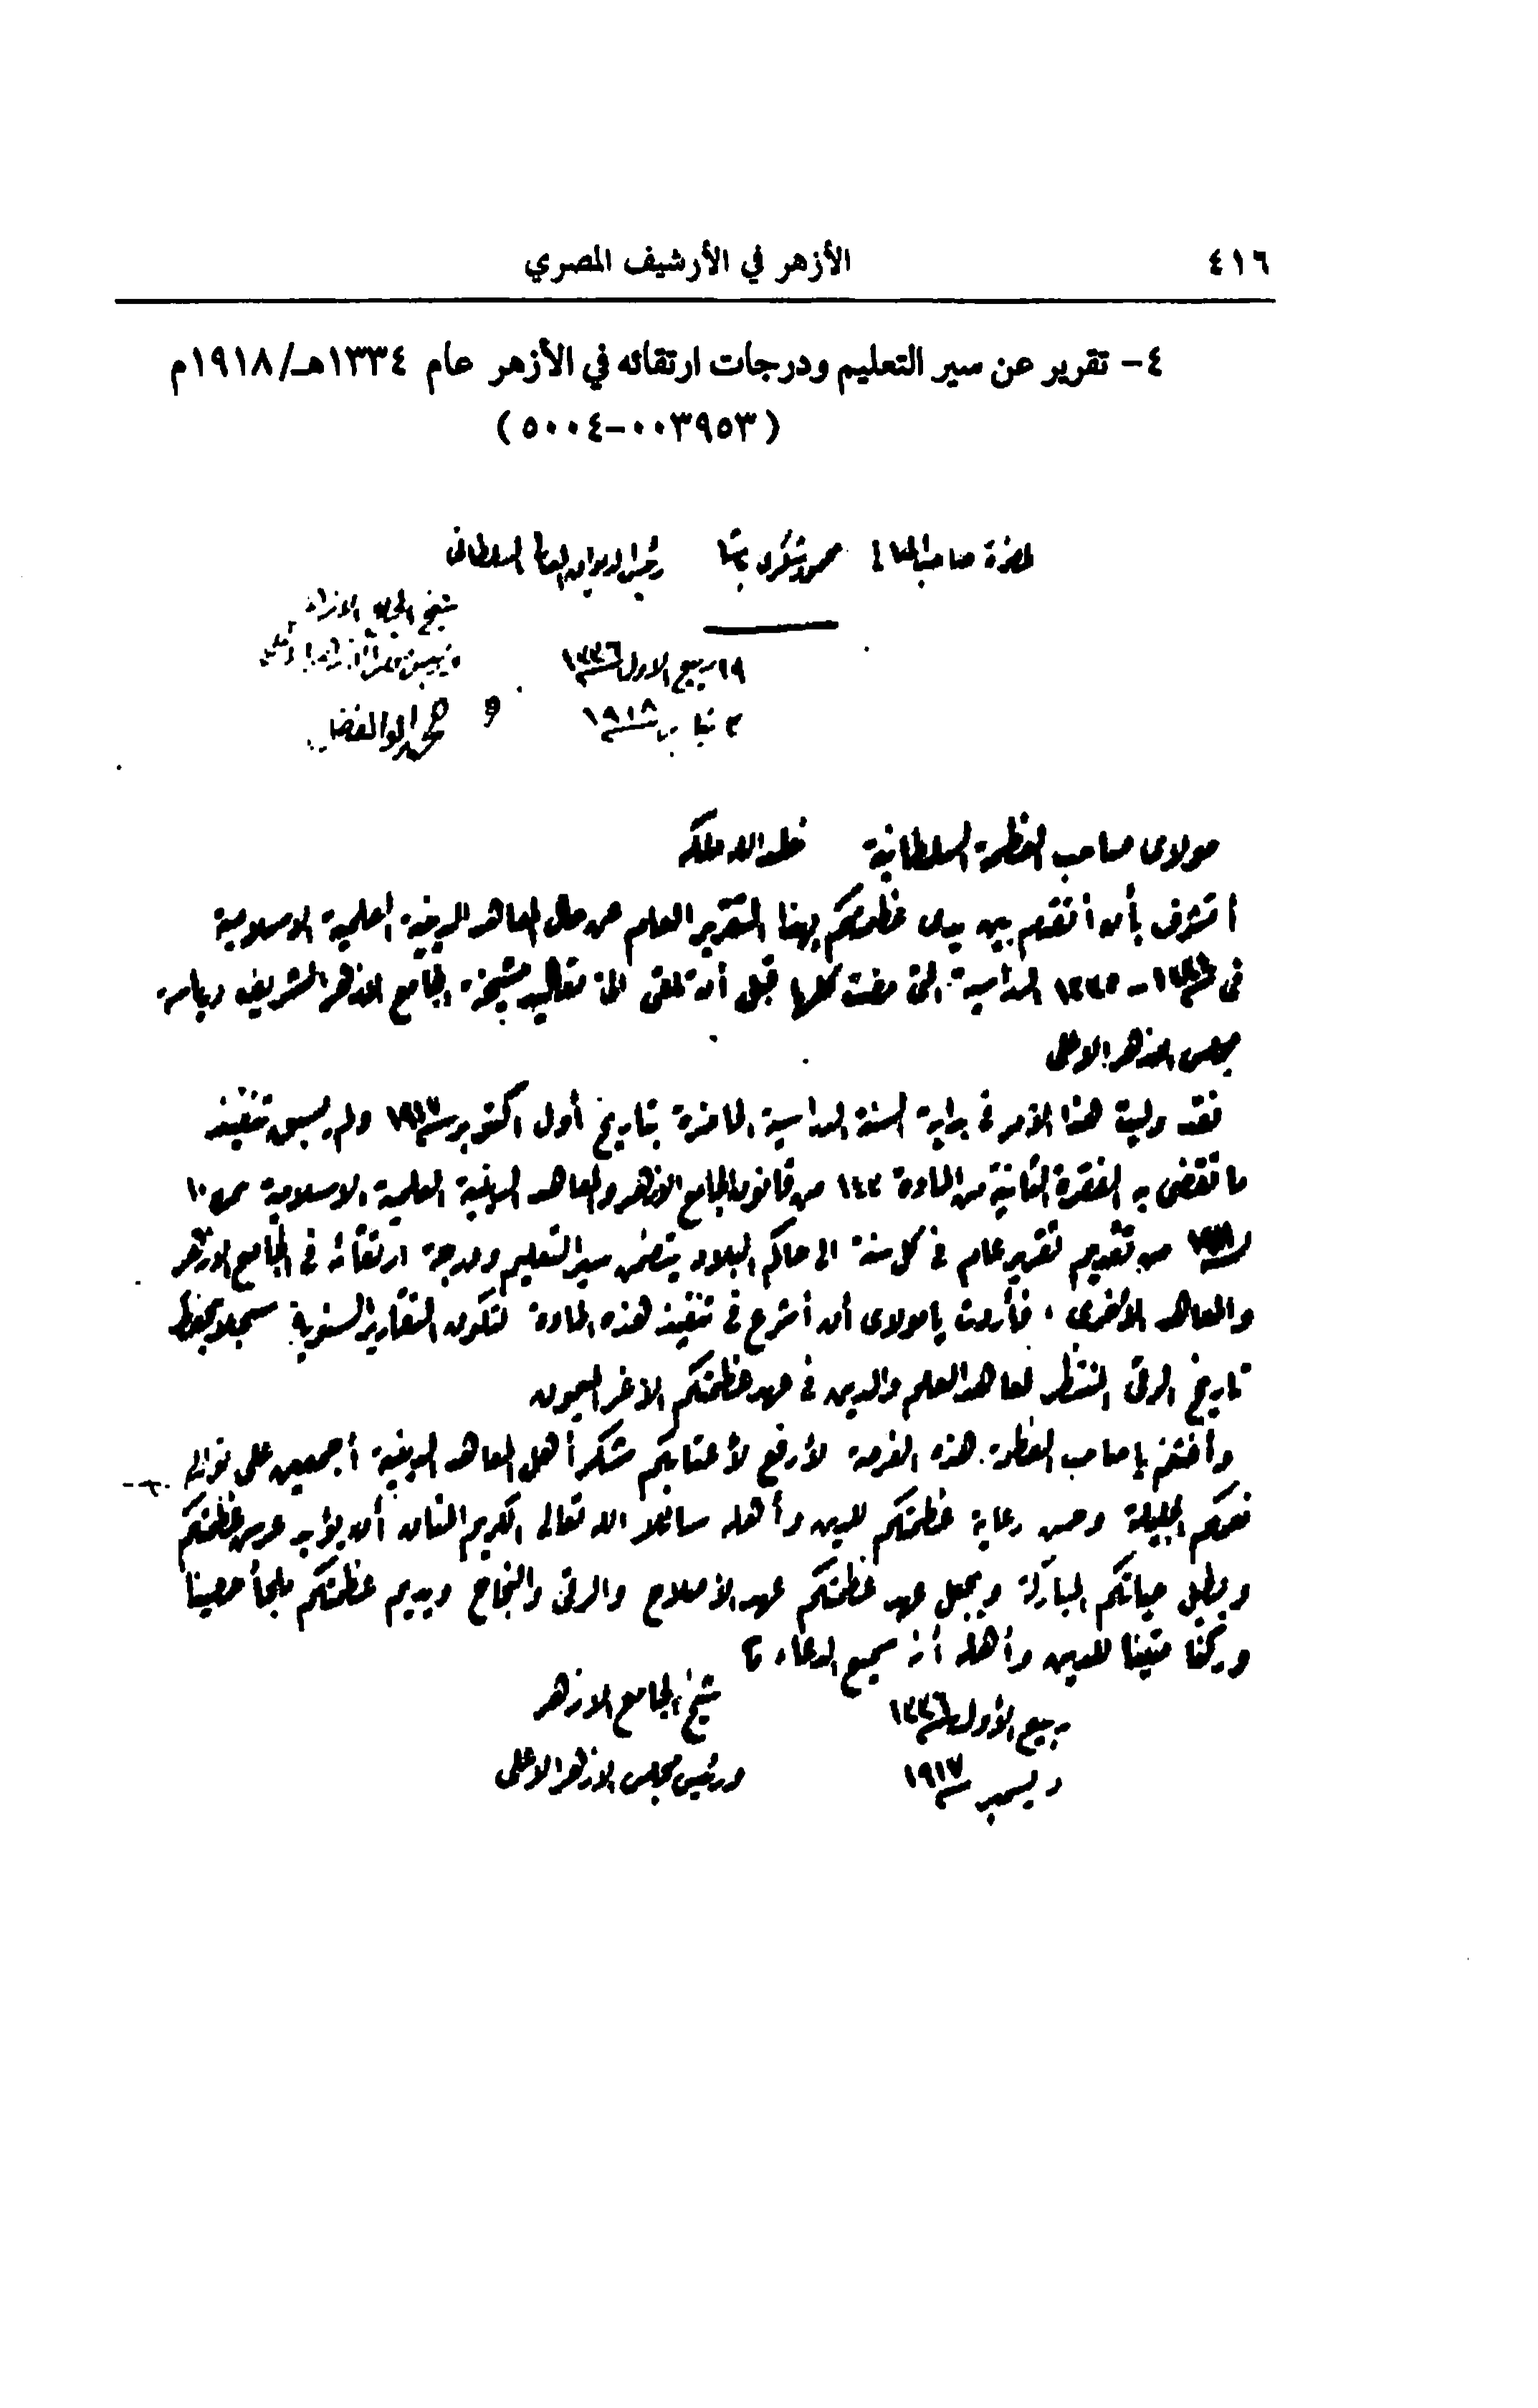 ٤١٦
الأزهر في الأرشيف المصري
٤- تقرير عن سير التعليم ودرجات ارتقائه في الأزهر عام ١٣٣٤هـ/١٩١٨م
(٥٠٠٤-٠٠٣٩٥٣)
لحضرة صاحب المعالى محمود شكرى باشا رئيس الديوان العالى السلطانى
شيخ الجامع الازهر
١٩ ربيع الاول سنة ١٣٣٦
ورئيس مجلس الازهر الاعلى
٢ يناير سنة ١٩١٨
محمد ابو الفضل
مولاى صاحب العظمة السلطانية خلد الله ملكه
أتشرف بأن أتقدم بين يدى عظمتكم بهذا التقرير العام عن حال المعاهد الدينية العلمية الاسلامية
فى سنة ١٣٣٤ - ١٣٣٥ الدراسية التى مضت كلها قبل أن تلقى الىّ مقاليد مشيخة الجامع الازهر الشريف ورياسة
مجلس الازهر الاعلى
فقد وليت هذا الأمر فى بداية السنة الدراسية الحاضرة بتاريخ أول اكتوبر سنة ١٩١٧ ولم يسبق تنفيذ
ما تقضى به الفقرة الثانية من المادة ١٤٢ من قانون الجامع الازهر والمعاهد الدينية العلمية الاسلامية نمرة ١٠
لسنة ١٩١١ من تقديم تقرير عام فى كل سنة الى حاكم البلاد يتضمن سير التعليم ودرجة ارتقائه فى الجامع الازهر
والمعاهد الأخرى، فأردت يا مولاى أن أشرع فى تنفيذ هذه المادة لتكون التقارير السنوية سجلا يحفظ
تاريخ الرقى المنتظر لمعاهد العلم والدين فى عهد عظمتكم الاغر الميمون
وأغتنم يا صاحب العظمة هذه الفرصة لأرفع لأعتابكم شكر أهل المعاهد الدينية أجمعين على توالى
نعمكم الجليلة وحسن رعاية عظمتكم للدين وأهله سائلا الله تعالى الكريم المنان أن يؤيد عرش عظمتكم
ويطيل حياتكم المباركة ويجعل عهد عظمتكم عهد الأصلاح والرقى والنجاح ويديم عظمتكم ملجأ حصينا
وركنا متينا للدين وأهله أنه سميع الدعاء
شيخ الجامع الازهر
ربيع الأول سنة ١٣٣٦
ورئيس مجلس الازهر الاعلى
ديسمبر سنة ١٩١٧